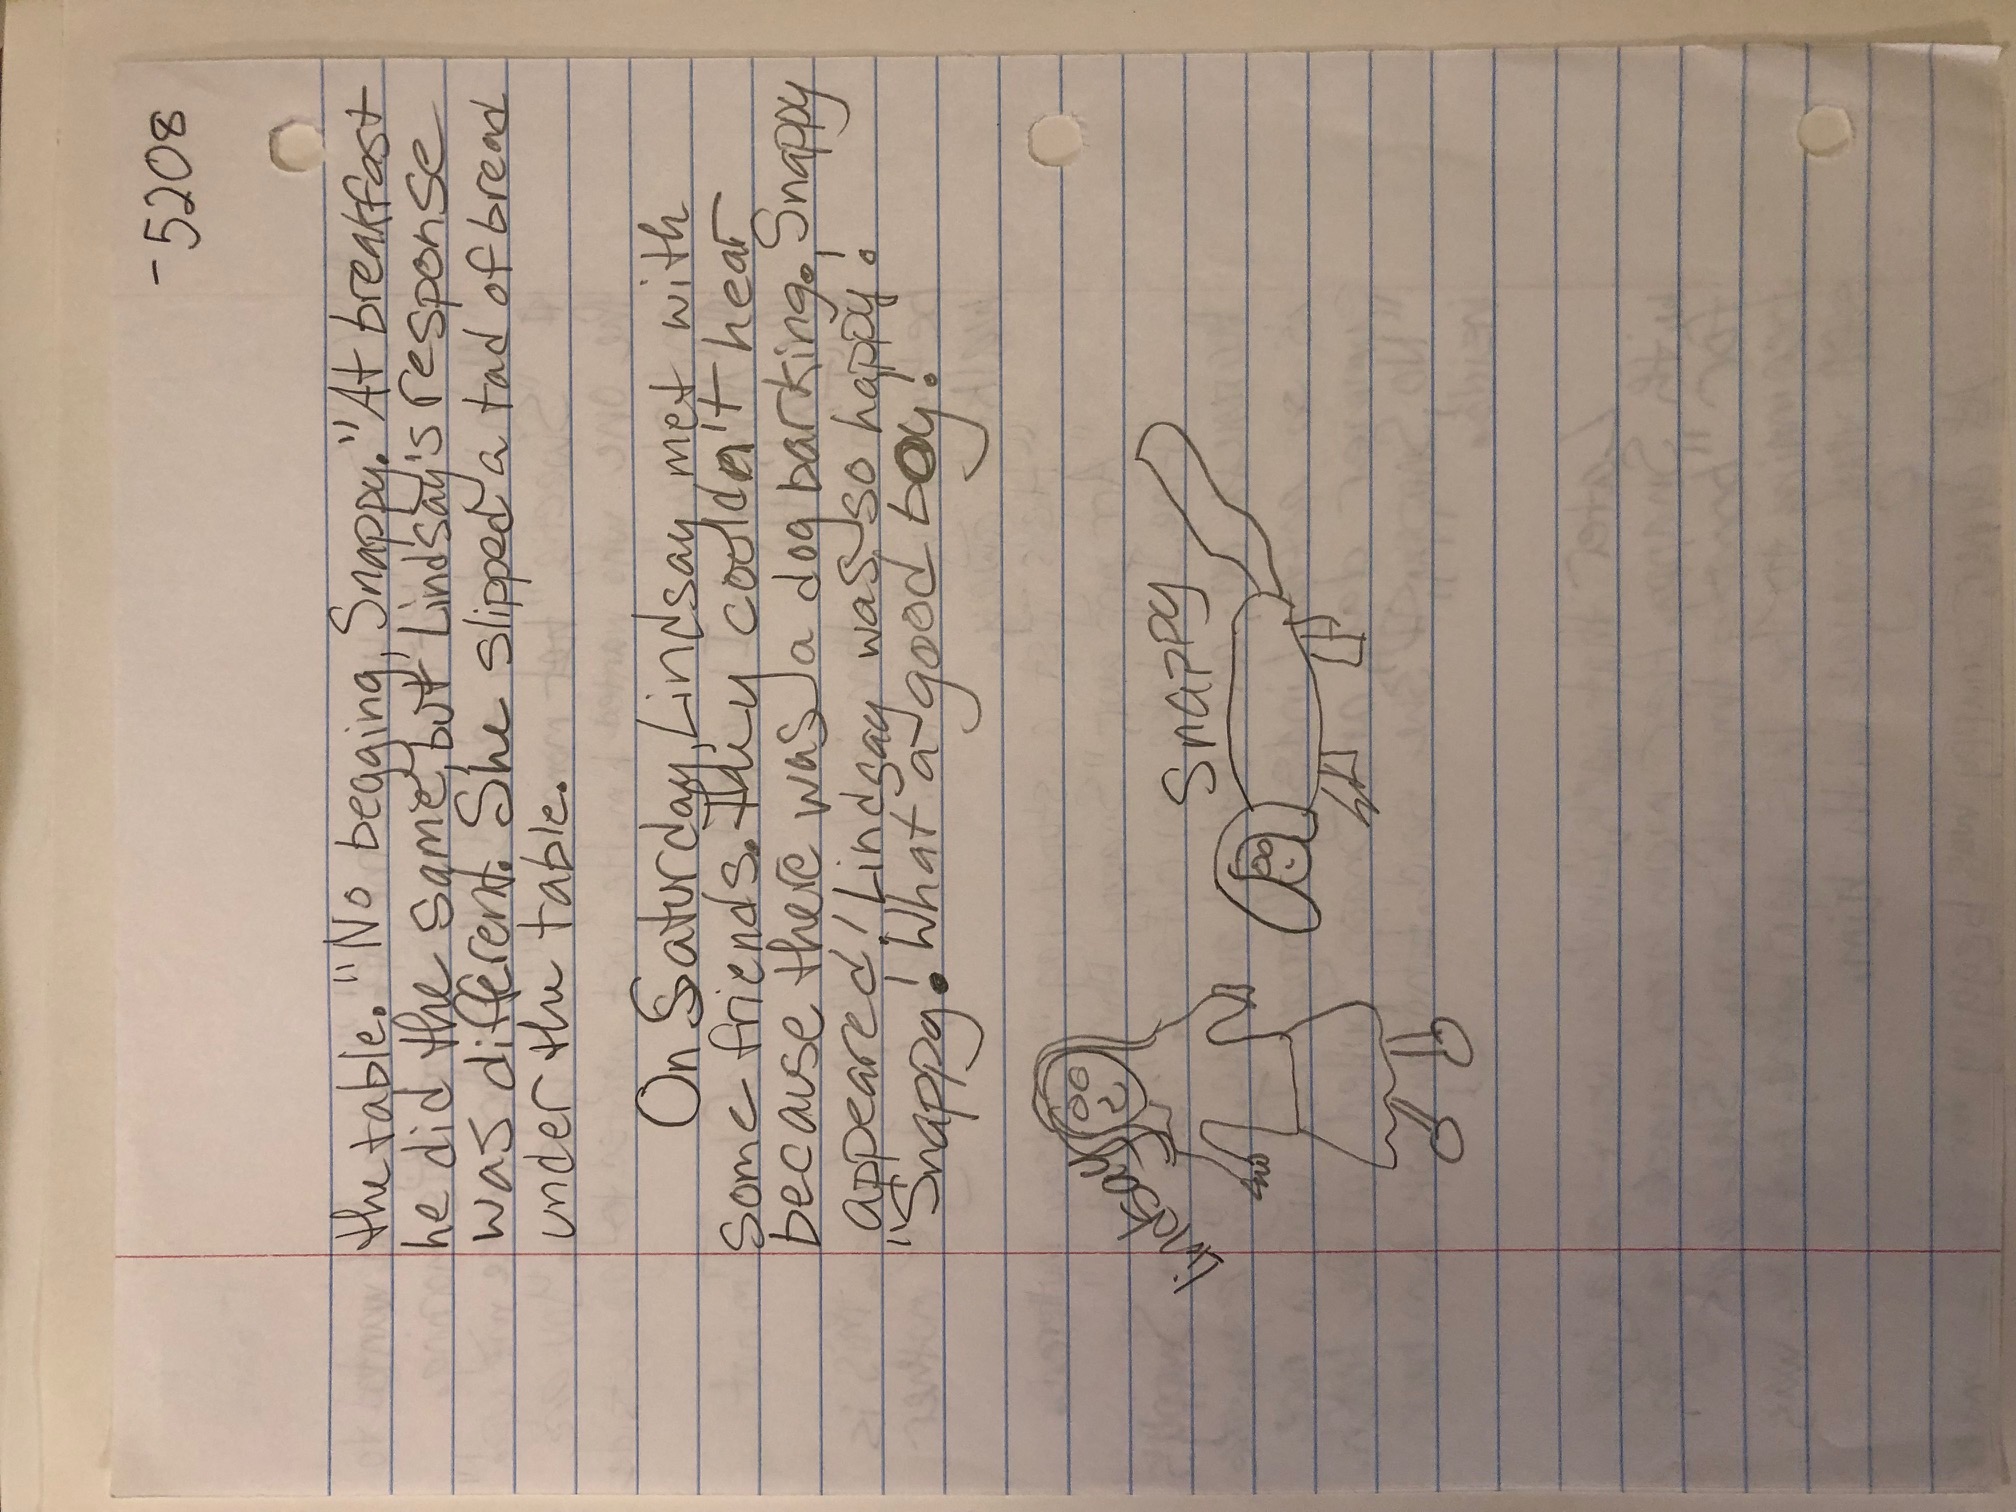 -5208
the table. "No begging, Snappy." At breakfast
he did the same, but Lindsay's response
was different. She slipped a tad of bread
under the table.
On Saturday, Lindsay met with
some friends. They couldn't hear
because there was a dog barking. Snappy
appeared! Lindsay was so happy!
"Snappy! What a good boy!
Lindsay
Snappy